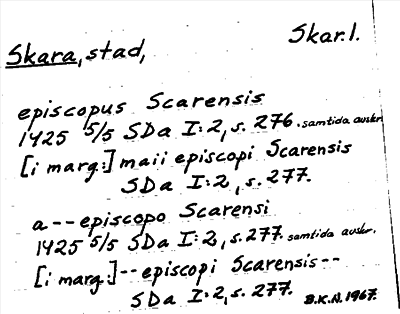 Skara, stad, Skar.1.
episcopus Scarensis
1425 5/5 SDa I:2, s. 276. samtida avskr.
[i marg:] maii episcopi Scarensis
SDa I:2, s. 277.
a -- episcopo Scarensi
1425 5/5 SDa I:2, s. 277. samtida avskr.
[i marg:] -- episcopi Scarensis --
SDa I:2, s. 277. B.K.N. 1967.